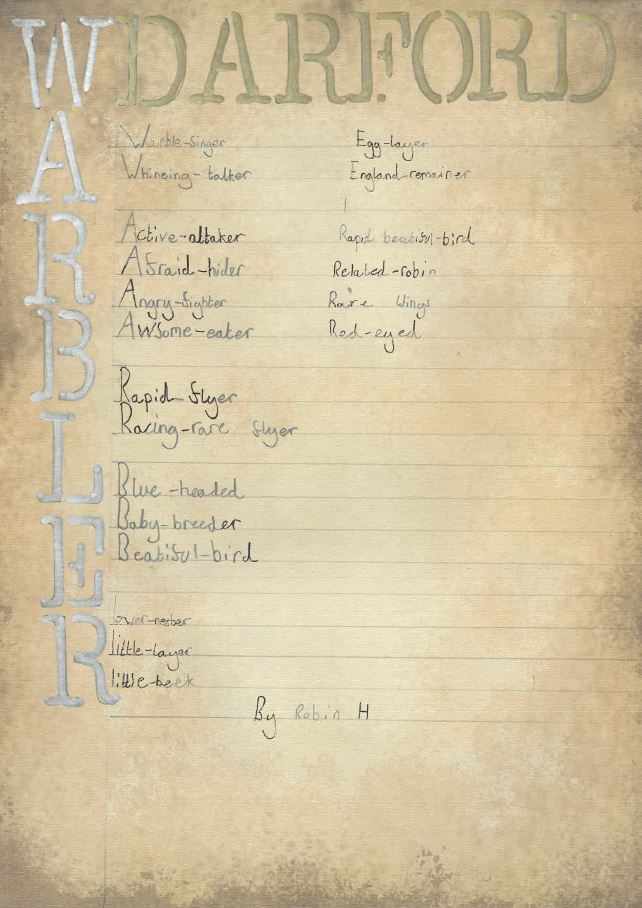 DARFORD
WARBLER
Warble-singer
Whineing-talker
Active-attaker
Afraid-hider
Angry-fighter
Awsome-eater
Rapid-flyer
Racing-rare flyer
Blue-headed
Baby-breeder
Beatiful-bird
lower-nester
little-layer
little-beek
Egg-layer
England-remainer
Rapid beatiful-bird
Related-robin
Rare Wings
Red-eyed
By Robin H